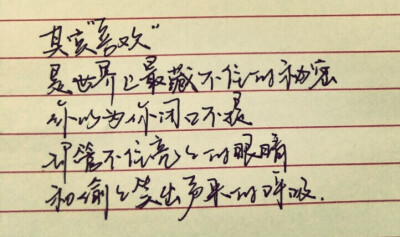 其实“喜欢”
是世界上最藏不住的秘密
你以为你闭口不提
却管不住亮亮的眼睛
和偷偷笑出声来的呼吸.